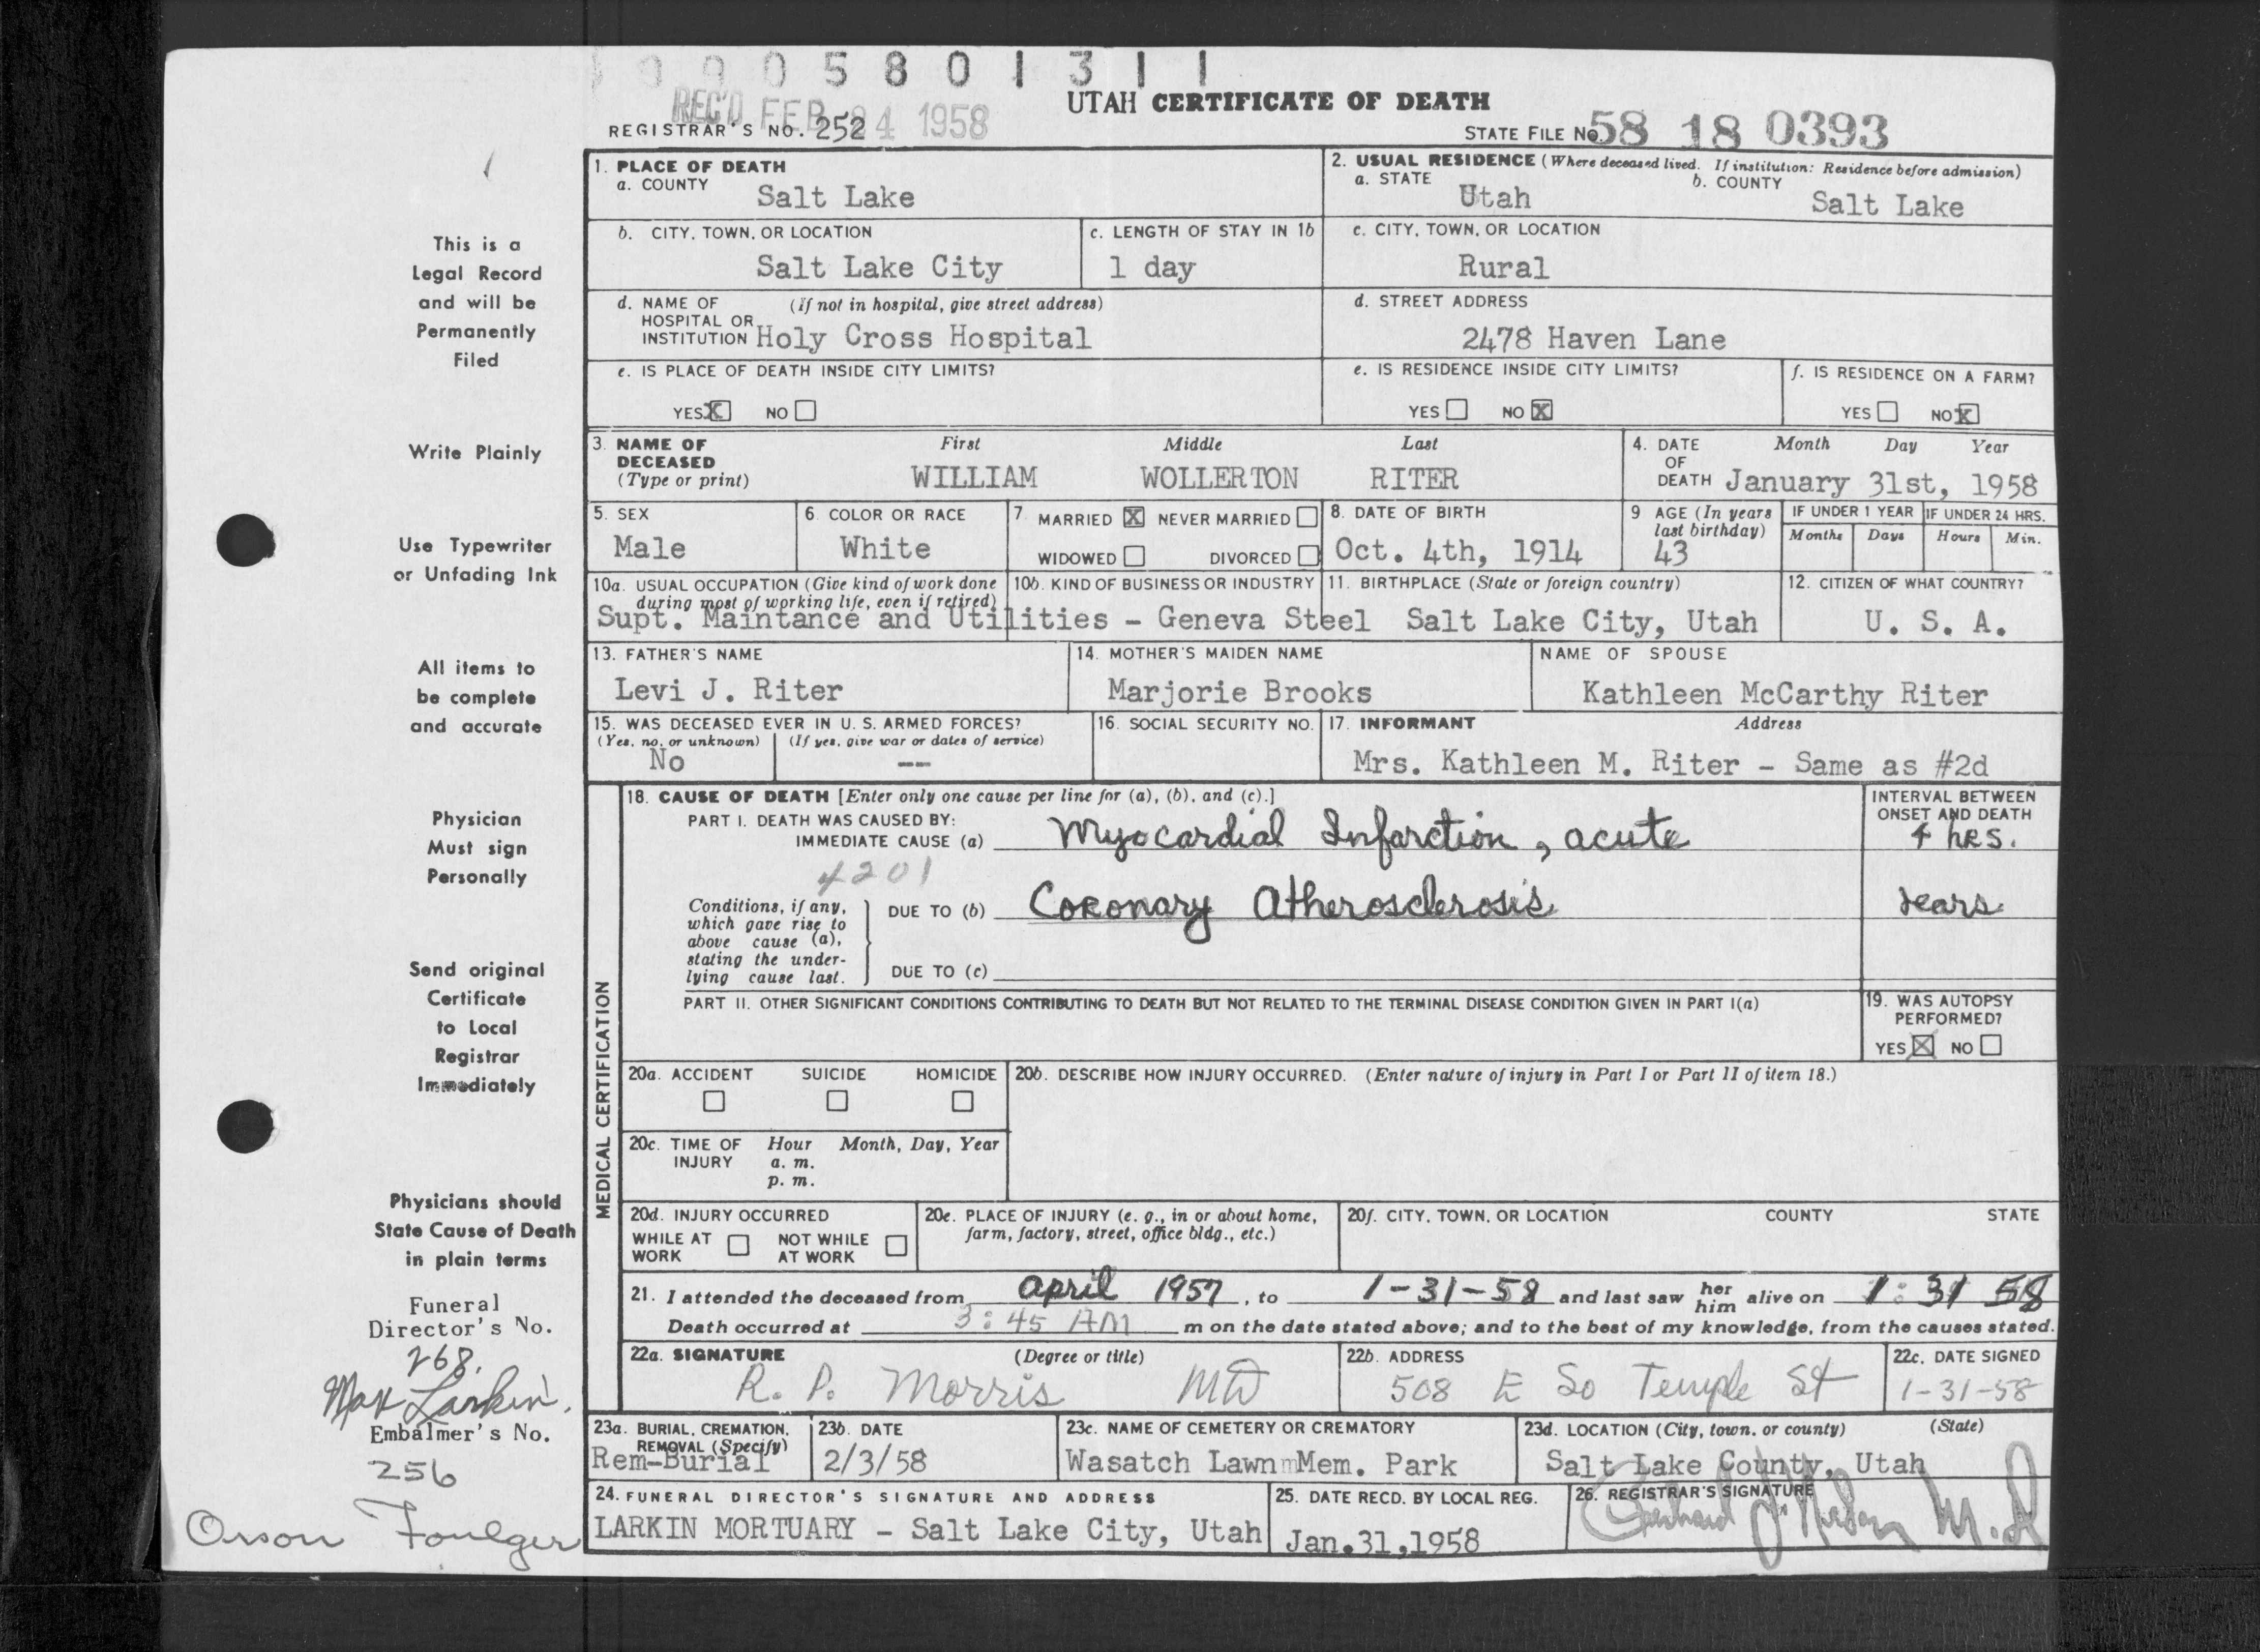 0 0 0 5 8 0 1 3 1 1
REC'D FEB 24 1958
UTAH CERTIFICATE OF DEATH
REGISTRAR'S NO. 252
STATE FILE No. 58 18 0393
1. PLACE OF DEATH
a. COUNTY Salt Lake
2. USUAL RESIDENCE (Where deceased lived. If institution: Residence before admission)
a. STATE Utah b. COUNTY Salt Lake
b. CITY, TOWN, OR LOCATION Salt Lake City
c. LENGTH OF STAY IN 1b 1 day
c. CITY, TOWN, OR LOCATION Rural
d. NAME OF HOSPITAL OR INSTITUTION (If not in hospital, give street address) Holy Cross Hospital
d. STREET ADDRESS 2478 Haven Lane
e. IS PLACE OF DEATH INSIDE CITY LIMITS?
YES X NO
e. IS RESIDENCE INSIDE CITY LIMITS?
YES NO X
f. IS RESIDENCE ON A FARM?
YES NO X
3. NAME OF DECEASED (Type or print)
First Middle Last
WILLIAM WOLLERTON RITER
4. DATE OF DEATH Month Day Year
January 31st, 1958
5. SEX Male
6. COLOR OR RACE White
7. MARRIED X NEVER MARRIED
WIDOWED DIVORCED
8. DATE OF BIRTH Oct. 4th, 1914
9 AGE (In years last birthday) 43
IF UNDER 1 YEAR Months Days
IF UNDER 24 HRS. Hours Min.
10a. USUAL OCCUPATION (Give kind of work done during most of working life, even if retired)
10b. KIND OF BUSINESS OR INDUSTRY
Supt. Maintance and Utilities - Geneva Steel
11. BIRTHPLACE (State or foreign country) Salt Lake City, Utah
12. CITIZEN OF WHAT COUNTRY? U. S. A.
13. FATHER'S NAME Levi J. Riter
14. MOTHER'S MAIDEN NAME Marjorie Brooks
NAME OF SPOUSE Kathleen McCarthy Riter
15. WAS DECEASED EVER IN U. S. ARMED FORCES?
(Yes, no, or unknown) No
(If yes, give war or dates of service) --
16. SOCIAL SECURITY NO.
17. INFORMANT Address
Mrs. Kathleen M. Riter - Same as #2d
MEDICAL CERTIFICATION
18. CAUSE OF DEATH [Enter only one cause per line for (a), (b), and (c).]
INTERVAL BETWEEN ONSET AND DEATH
PART I. DEATH WAS CAUSED BY:
IMMEDIATE CAUSE (a) Myocardial Infarction, acute 4 hrs.
4201
Conditions, if any, which gave rise to above cause (a), stating the underlying cause last.
DUE TO (b) Coronary Atherosclerosis years
DUE TO (c)
PART II. OTHER SIGNIFICANT CONDITIONS CONTRIBUTING TO DEATH BUT NOT RELATED TO THE TERMINAL DISEASE CONDITION GIVEN IN PART I(a)
19. WAS AUTOPSY PERFORMED?
YES X NO
20a. ACCIDENT SUICIDE HOMICIDE
20b. DESCRIBE HOW INJURY OCCURRED. (Enter nature of injury in Part I or Part II of item 18.)
20c. TIME OF INJURY Hour Month, Day, Year
a. m.
p. m.
20d. INJURY OCCURRED
WHILE AT WORK NOT WHILE AT WORK
20e. PLACE OF INJURY (e. g., in or about home, farm, factory, street, office bldg., etc.)
20f. CITY, TOWN, OR LOCATION COUNTY STATE
21. I attended the deceased from April 1957, to 1-31-58 and last saw her him alive on 1:31 58
Death occurred at 3:45 AM m on the date stated above; and to the best of my knowledge, from the causes stated.
22a. SIGNATURE (Degree or title) R. P. Morris MD
22b. ADDRESS 508 E So Temple St
22c. DATE SIGNED 1-31-58
23a. BURIAL, CREMATION, REMOVAL (Specify) Rem-Burial
23b. DATE 2/3/58
23c. NAME OF CEMETERY OR CREMATORY Wasatch Lawn Mem. Park
23d. LOCATION (City, town, or county) (State) Salt Lake County, Utah
24. FUNERAL DIRECTOR'S SIGNATURE AND ADDRESS
LARKIN MORTUARY - Salt Lake City, Utah
25. DATE RECD. BY LOCAL REG. Jan.31,1958
26. REGISTRAR'S SIGNATURE
M.D
This is a
Legal Record
and will be
Permanently
Filed
Write Plainly
Use Typewriter
or Unfading Ink
All items to
be complete
and accurate
Physician
Must sign
Personally
Send original
Certificate
to Local
Registrar
Immediately
Physicians should
State Cause of Death
in plain terms
Funeral
Director's No.
268.
Max Larkin.
Embalmer's No.
256
Orson Foulger